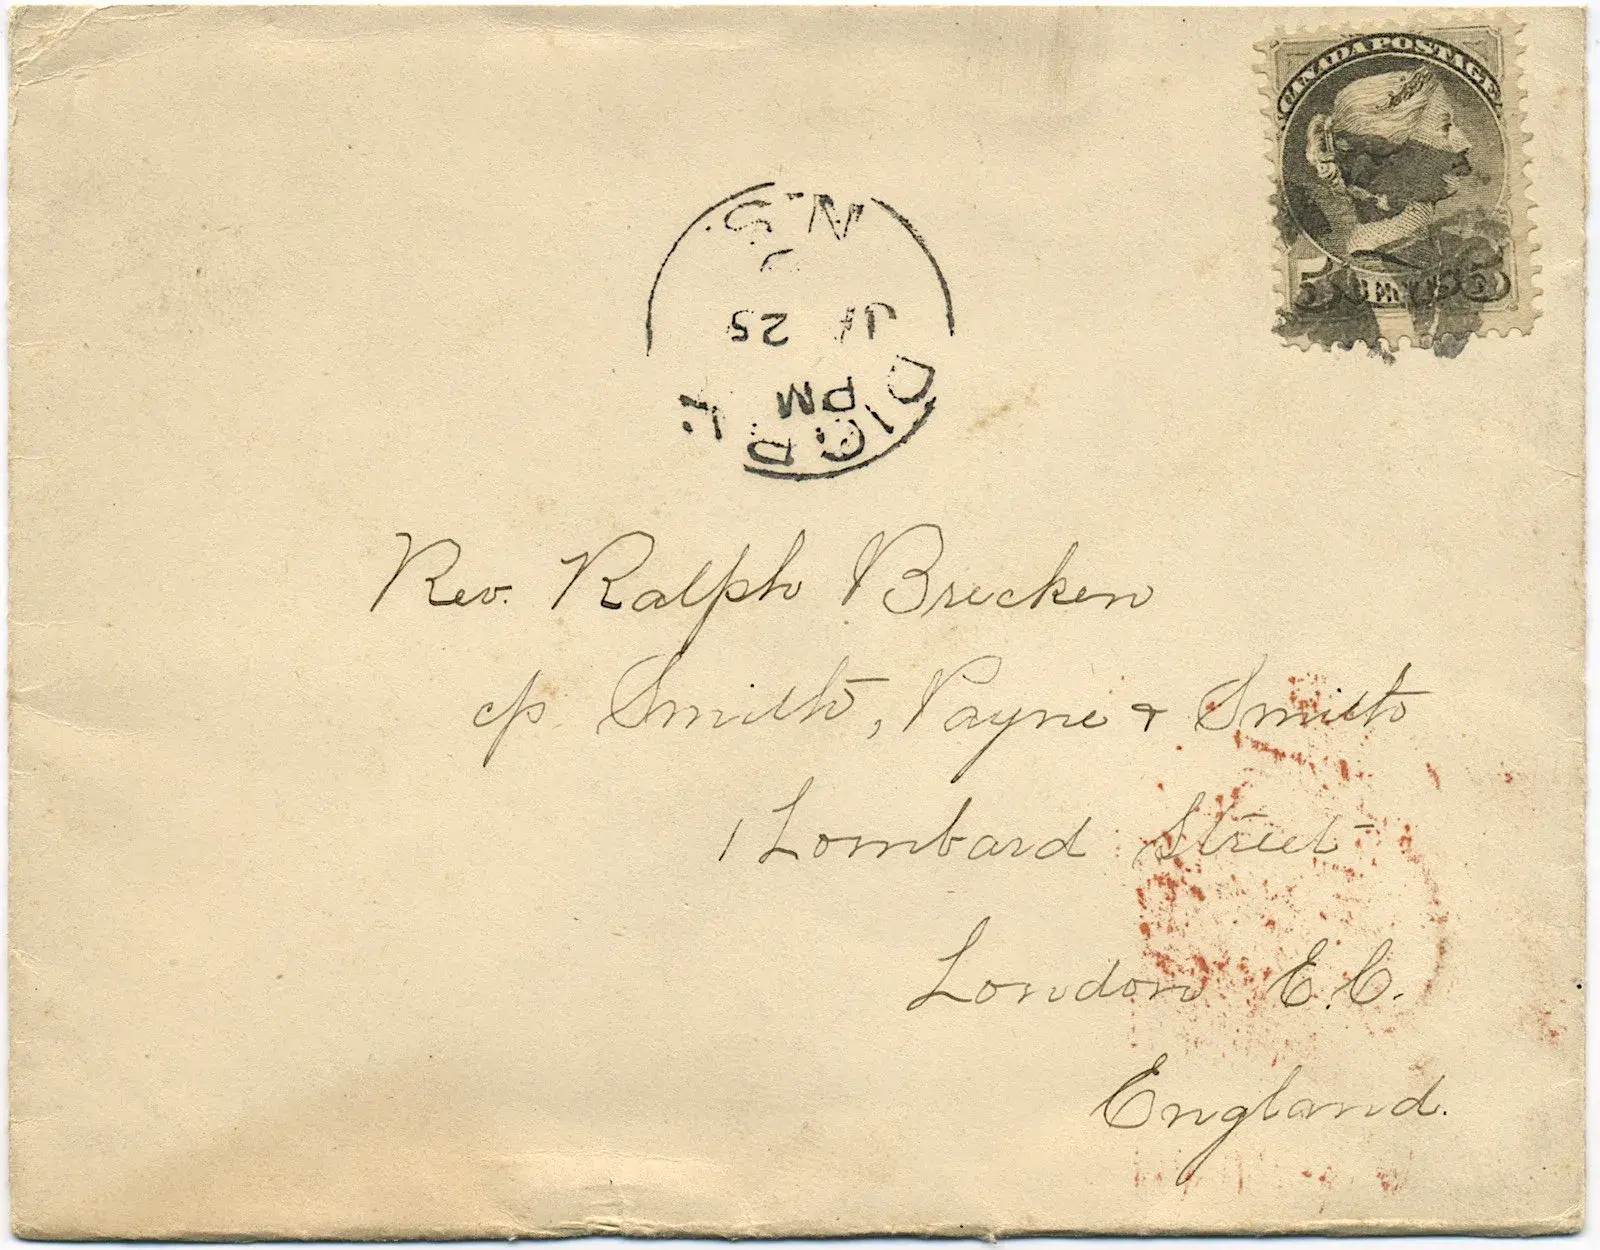 CANADA POSTAGE
5 CENTS 5
N.S.
25
PM
DIGBY
Rev. Ralph Brecken
c/o Smith, Payne & Smith
1 Lombard Street
London E.C.
England.